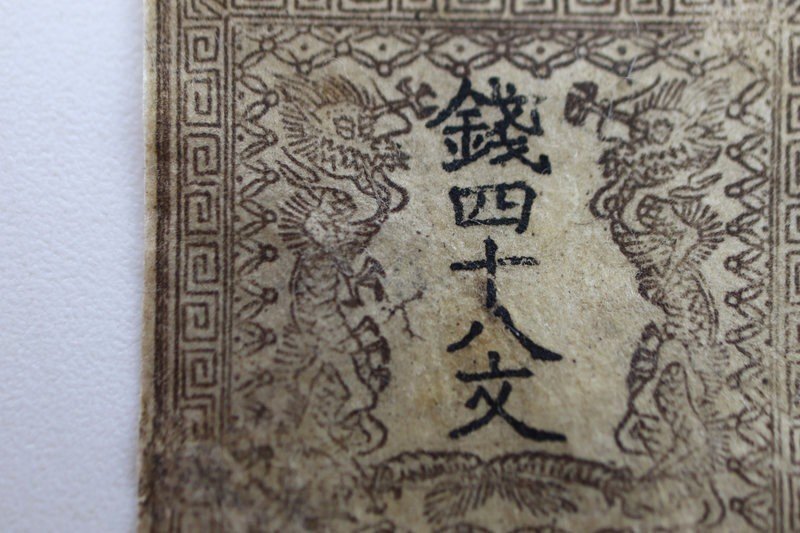 錢四十八文